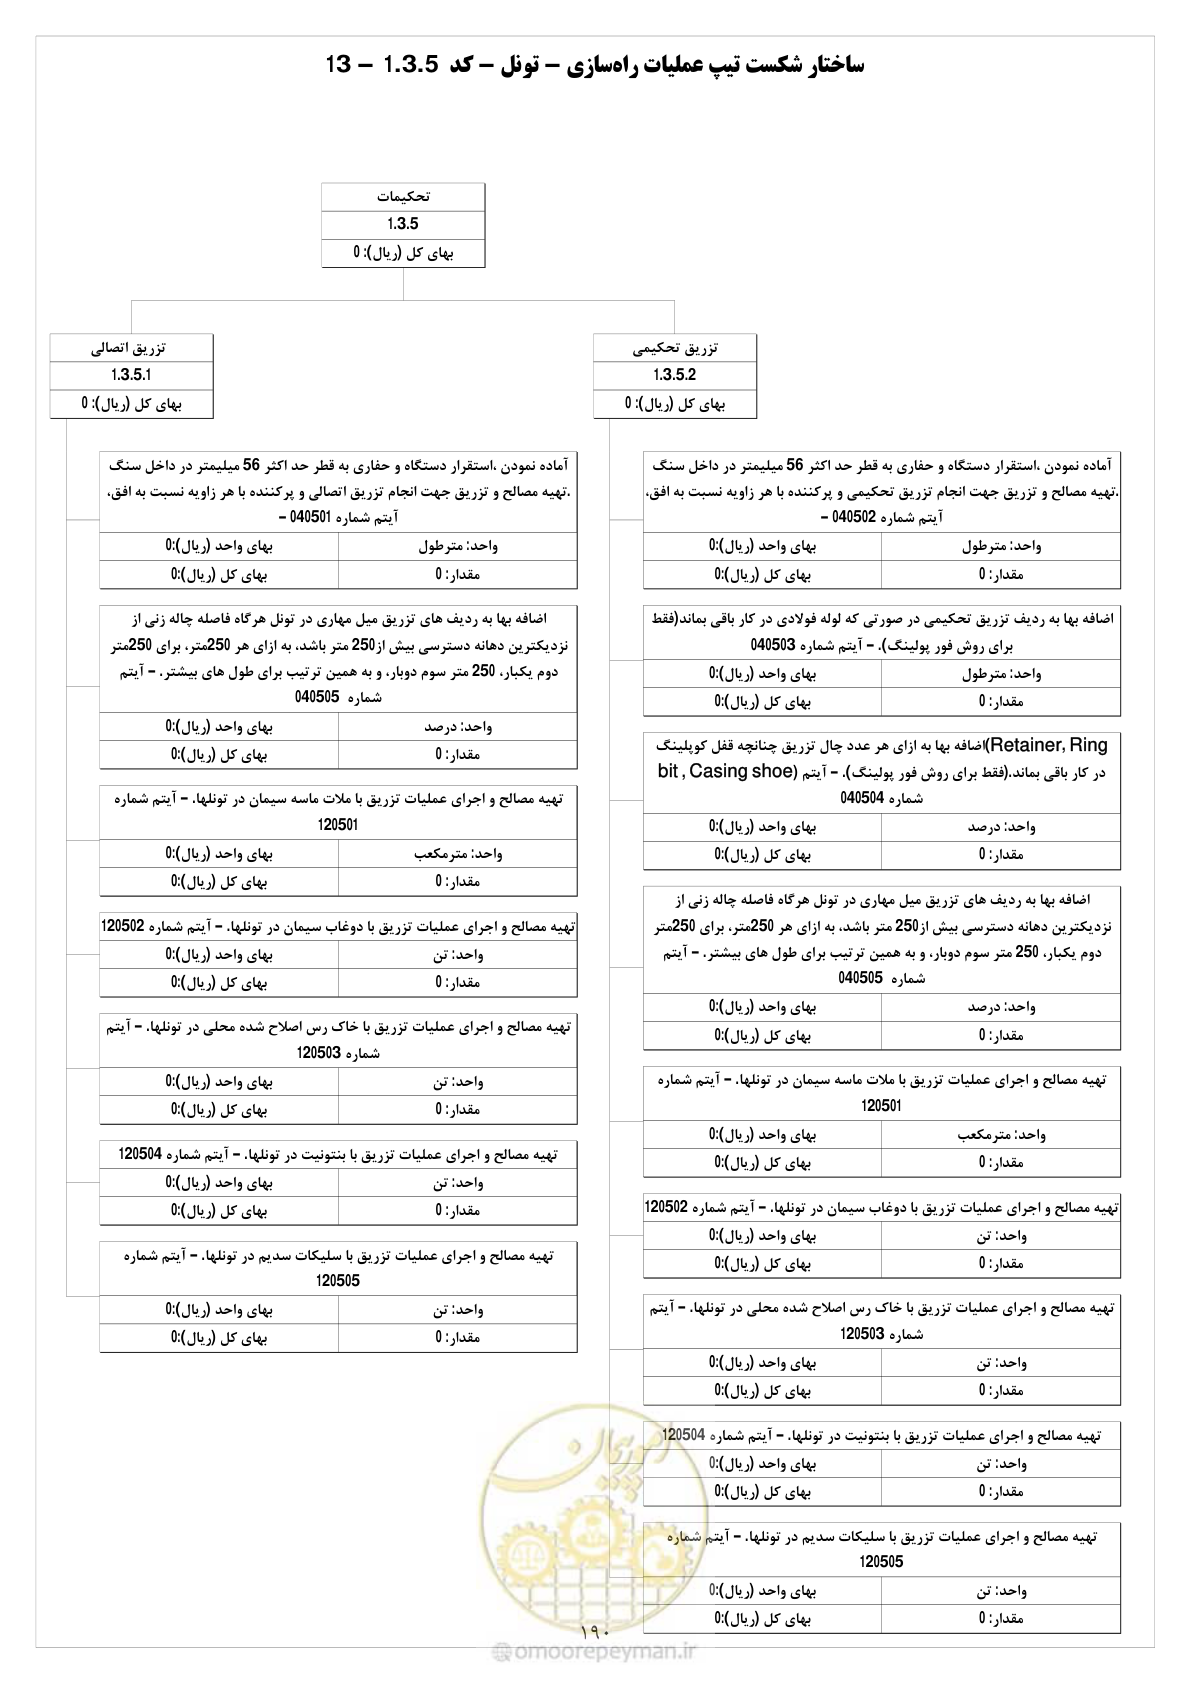 ساختار شکست تیپ عملیات راه‌سازی – تونل – کد 1.3.5 – 13
تحکیمات
1.3.5
بهای کل (ریال): 0
تزریق تحکیمی
1.3.5.2
بهای کل (ریال): 0
آماده نمودن ،استقرار دستگاه و حفاری به قطر حد اکثر 56 میلیمتر در داخل سنگ
،تهیه مصالح و تزریق جهت انجام تزریق تحکیمی و پرکننده با هر زاویه نسبت به افق.
آیتم شماره 040502 –
واحد: مترطول بهای واحد (ریال):0
مقدار: 0 بهای کل (ریال):0
اضافه بها به ردیف تزریق تحکیمی در صورتی که لوله فولادی در کار باقی بماند(فقط
برای روش فور پولینگ). – آیتم شماره 040503
واحد: مترطول بهای واحد (ریال):0
مقدار: 0 بهای کل (ریال):0
Retainer, Ring)اضافه بها به ازای هر عدد چال تزریق چنانچه قفل کوپلینگ
در کار باقی بماند.(فقط برای روش فور پولینگ). – آیتم (bit , Casing shoe
شماره 040504
واحد: درصد بهای واحد (ریال):0
مقدار: 0 بهای کل (ریال):0
اضافه بها به ردیف های تزریق میل مهاری در تونل هرگاه فاصله چاله زنی از
نزدیکترین دهانه دسترسی بیش از250 متر باشد، به ازای هر 250متر، برای 250متر
دوم یکبار، 250 متر سوم دوبار، و به همین ترتیب برای طول های بیشتر. – آیتم
شماره 040505
واحد: درصد بهای واحد (ریال):0
مقدار: 0 بهای کل (ریال):0
تهیه مصالح و اجرای عملیات تزریق با ملات ماسه سیمان در تونلها. – آیتم شماره
120501
واحد: مترمکعب بهای واحد (ریال):0
مقدار: 0 بهای کل (ریال):0
تهیه مصالح و اجرای عملیات تزریق با دوغاب سیمان در تونلها. – آیتم شماره 120502
واحد: تن بهای واحد (ریال):0
مقدار: 0 بهای کل (ریال):0
تهیه مصالح و اجرای عملیات تزریق با خاک رس اصلاح شده محلی در تونلها. – آیتم
شماره 120503
واحد: تن بهای واحد (ریال):0
مقدار: 0 بهای کل (ریال):0
تهیه مصالح و اجرای عملیات تزریق با بنتونیت در تونلها. – آیتم شماره 120504
واحد: تن بهای واحد (ریال):0
مقدار: 0 بهای کل (ریال):0
تهیه مصالح و اجرای عملیات تزریق با سلیکات سدیم در تونلها. – آیتم شماره
120505
واحد: تن بهای واحد (ریال):0
مقدار: 0 بهای کل (ریال):0
تزریق اتصالی
1.3.5.1
بهای کل (ریال): 0
آماده نمودن ،استقرار دستگاه و حفاری به قطر حد اکثر 56 میلیمتر در داخل سنگ
،تهیه مصالح و تزریق جهت انجام تزریق اتصالی و پرکننده با هر زاویه نسبت به افق.
آیتم شماره 040501 –
واحد: مترطول بهای واحد (ریال):0
مقدار: 0 بهای کل (ریال):0
اضافه بها به ردیف های تزریق میل مهاری در تونل هرگاه فاصله چاله زنی از
نزدیکترین دهانه دسترسی بیش از250 متر باشد، به ازای هر 250متر، برای 250متر
دوم یکبار، 250 متر سوم دوبار، و به همین ترتیب برای طول های بیشتر. – آیتم
شماره 040505
واحد: درصد بهای واحد (ریال):0
مقدار: 0 بهای کل (ریال):0
تهیه مصالح و اجرای عملیات تزریق با ملات ماسه سیمان در تونلها. – آیتم شماره
120501
واحد: مترمکعب بهای واحد (ریال):0
مقدار: 0 بهای کل (ریال):0
تهیه مصالح و اجرای عملیات تزریق با دوغاب سیمان در تونلها. – آیتم شماره 120502
واحد: تن بهای واحد (ریال):0
مقدار: 0 بهای کل (ریال):0
تهیه مصالح و اجرای عملیات تزریق با خاک رس اصلاح شده محلی در تونلها. – آیتم
شماره 120503
واحد: تن بهای واحد (ریال):0
مقدار: 0 بهای کل (ریال):0
تهیه مصالح و اجرای عملیات تزریق با بنتونیت در تونلها. – آیتم شماره 120504
واحد: تن بهای واحد (ریال):0
مقدار: 0 بهای کل (ریال):0
تهیه مصالح و اجرای عملیات تزریق با سلیکات سدیم در تونلها. – آیتم شماره
120505
واحد: تن بهای واحد (ریال):0
مقدار: 0 بهای کل (ریال):0
امور پیمان
۱۹۰
@omoorepeyman.ir